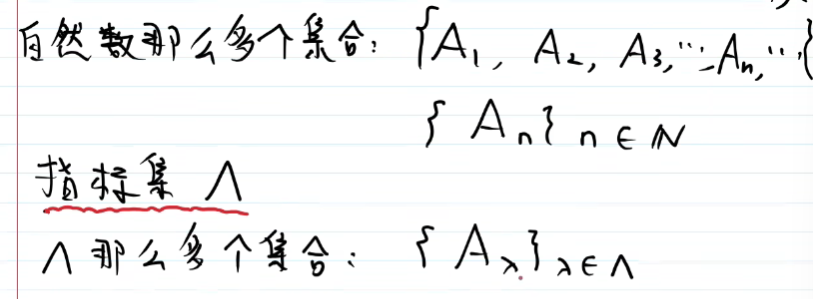 自然数那么多个集合: {A₁, A₂, A₃, ⋯, Aₙ, ⋯}
{Aₙ}n∈ℕ
指标集 Λ
Λ那么多个集合: {A_λ}λ∈Λ